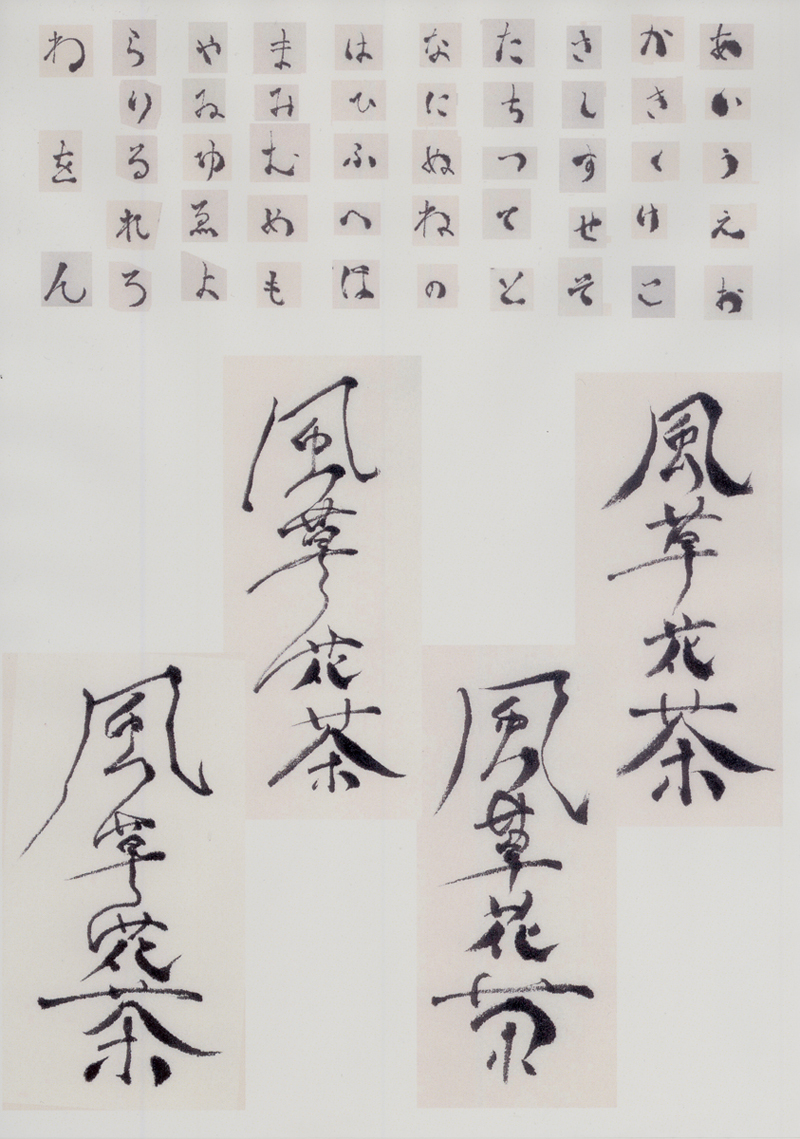 あいうえお
かきくけこ
さしすせそ
たちつてと
なにぬねの
はひふへほ
まみむめも
やゐゆゑよ
らりるれろ
わをん
風草花茶
風草花茶
風草花茶
風草花茶